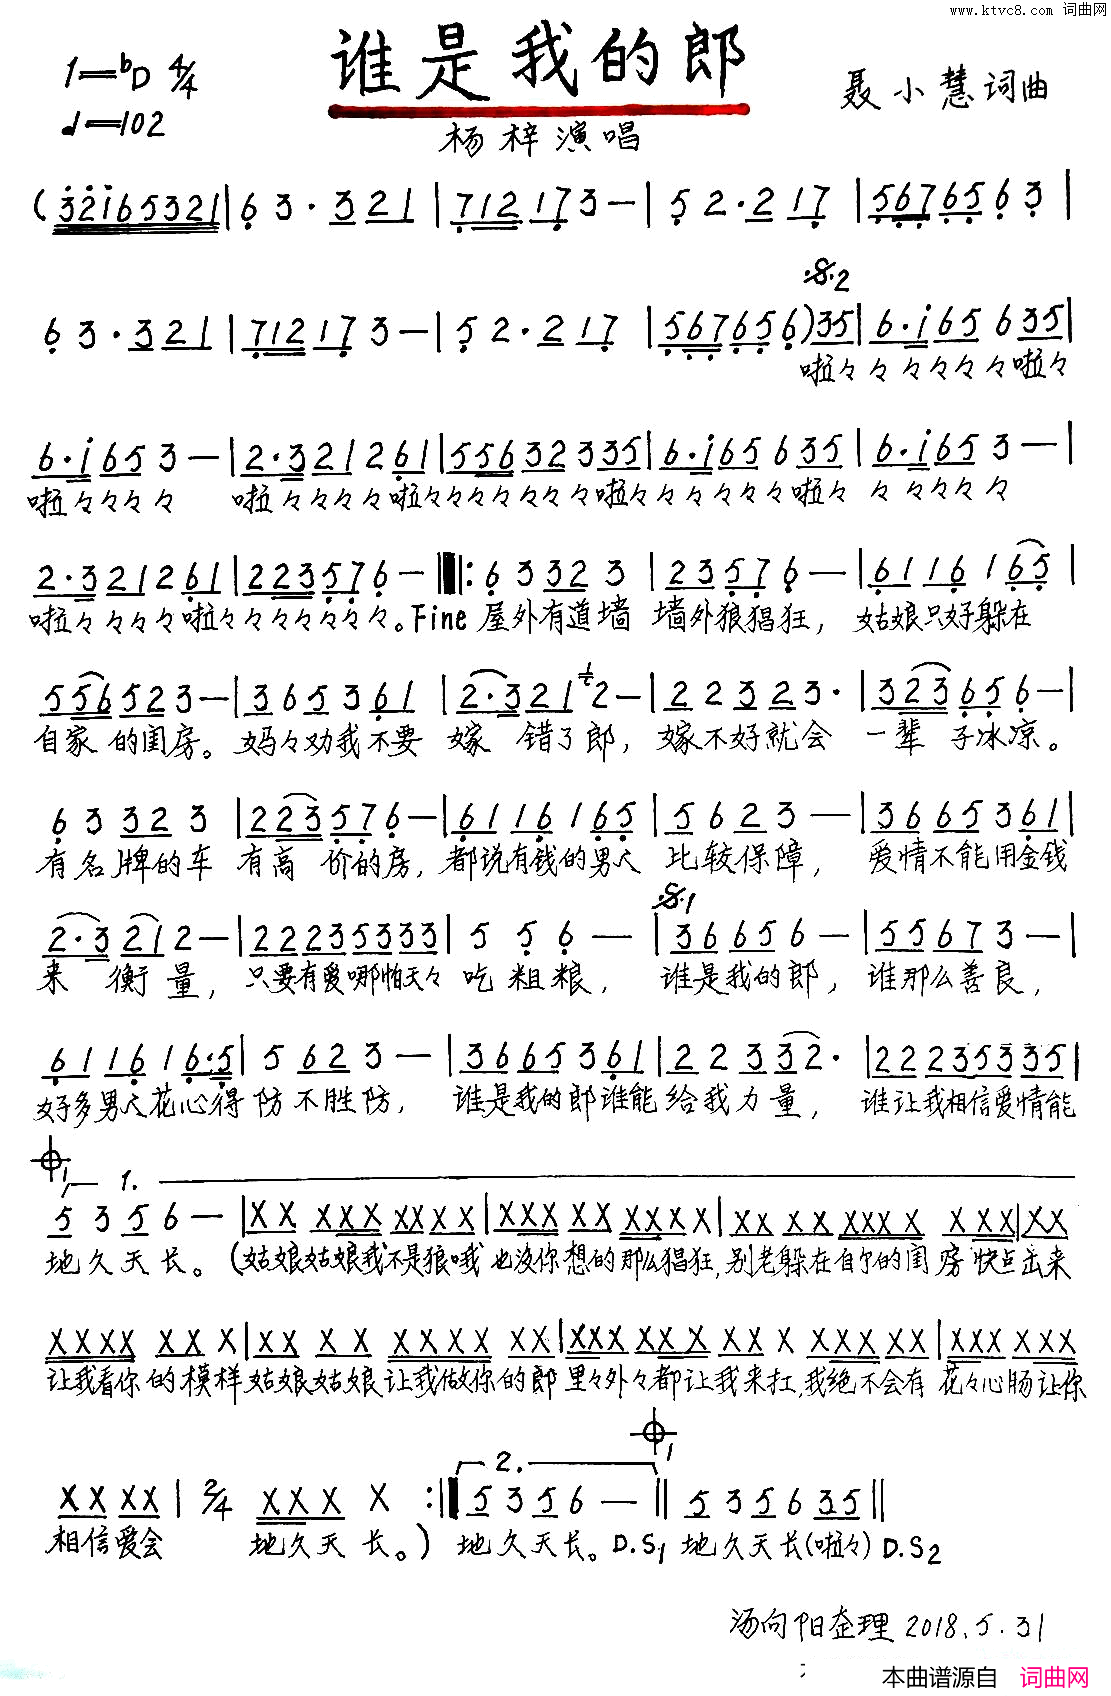 www.ktvc8.com 词曲网
谁是我的郎
1=♭D 4/4
♩=102
聂小慧词曲
杨梓演唱
(3̇2̇1̇65321|6̣ 3·321|7̣127̣3—|5̣2·217̣|5̣6̣7̣6̣5̣6̣3̣|
6̣3·321|7̣1217̣3—|5̣2·217̣|5̣6̣7̣6̣5̣6̣)35|6·1̇65635|
𝄋2
啦々々々々々々啦々
6·1̇653—|2·321261̣|55632335|6·1̇65635|6·1̇653—|
啦々々々々 啦々々々々啦々々々々々々啦々々々々々々啦々 々々々々々
2·321261|2235̣7̣6̣—‖:6̣3323|235̣7̣6̣—|6̣116̣16̣5̣|
啦々々々々啦々々々々々々。Fine 屋外有道墙 墙外狼猖狂，姑娘只好躲在
556523—|365361|2·3212—|22323·|3236̣5̣6̣—|
自家的闺房。妈々劝我不要 嫁 错了郎，嫁不好就会 一辈子冰凉。
6̣3323|2235̣7̣6̣—|6̣116̣16̣5̣|5623—|366536̣1|
有名牌的车 有高 价的房，都说有钱的男人 比较保障，爱情不能用金钱
2·3212—|22235333|5 5̣ 6̣—|366566—|55673—|
来 衡量，只要有爱哪怕天々 吃粗粮，谁是我的郎，谁那么善良，
𝄋1
6̣116̣16̣·5̣|5623—|366536̣1|22332·|22235335|
好多男人花心得 防不胜防，谁是我的郎谁能 给我力量，谁让我相信爱情能
1.
5356—|XX XXX XXXX|XXX XX XXXX X|XX XX XXXX XXX|XX
地久天长。(姑娘姑娘我不是狼哦 也没你想的那么猖狂，别老躲在自个的闺房 快点出来
XXXX XX X|XX XX XXXX XX|XXX XXX XX X XXXXX|XXX XXX
让我看你的模样 姑娘姑娘让我做你的郎 里々外々都让我来扛，我绝不会有 花々心肠让你
2.
XX XX|2/4 XXX X:‖5356—‖535635‖
相信爱会 地久天长。) 地久天长。D.S1 地久天长(啦々)D.S2
汤向阳整理 2018.5.31
本曲谱源自 词曲网